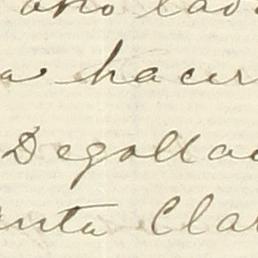 otro lad
a hacer
Degollac
anta Clar